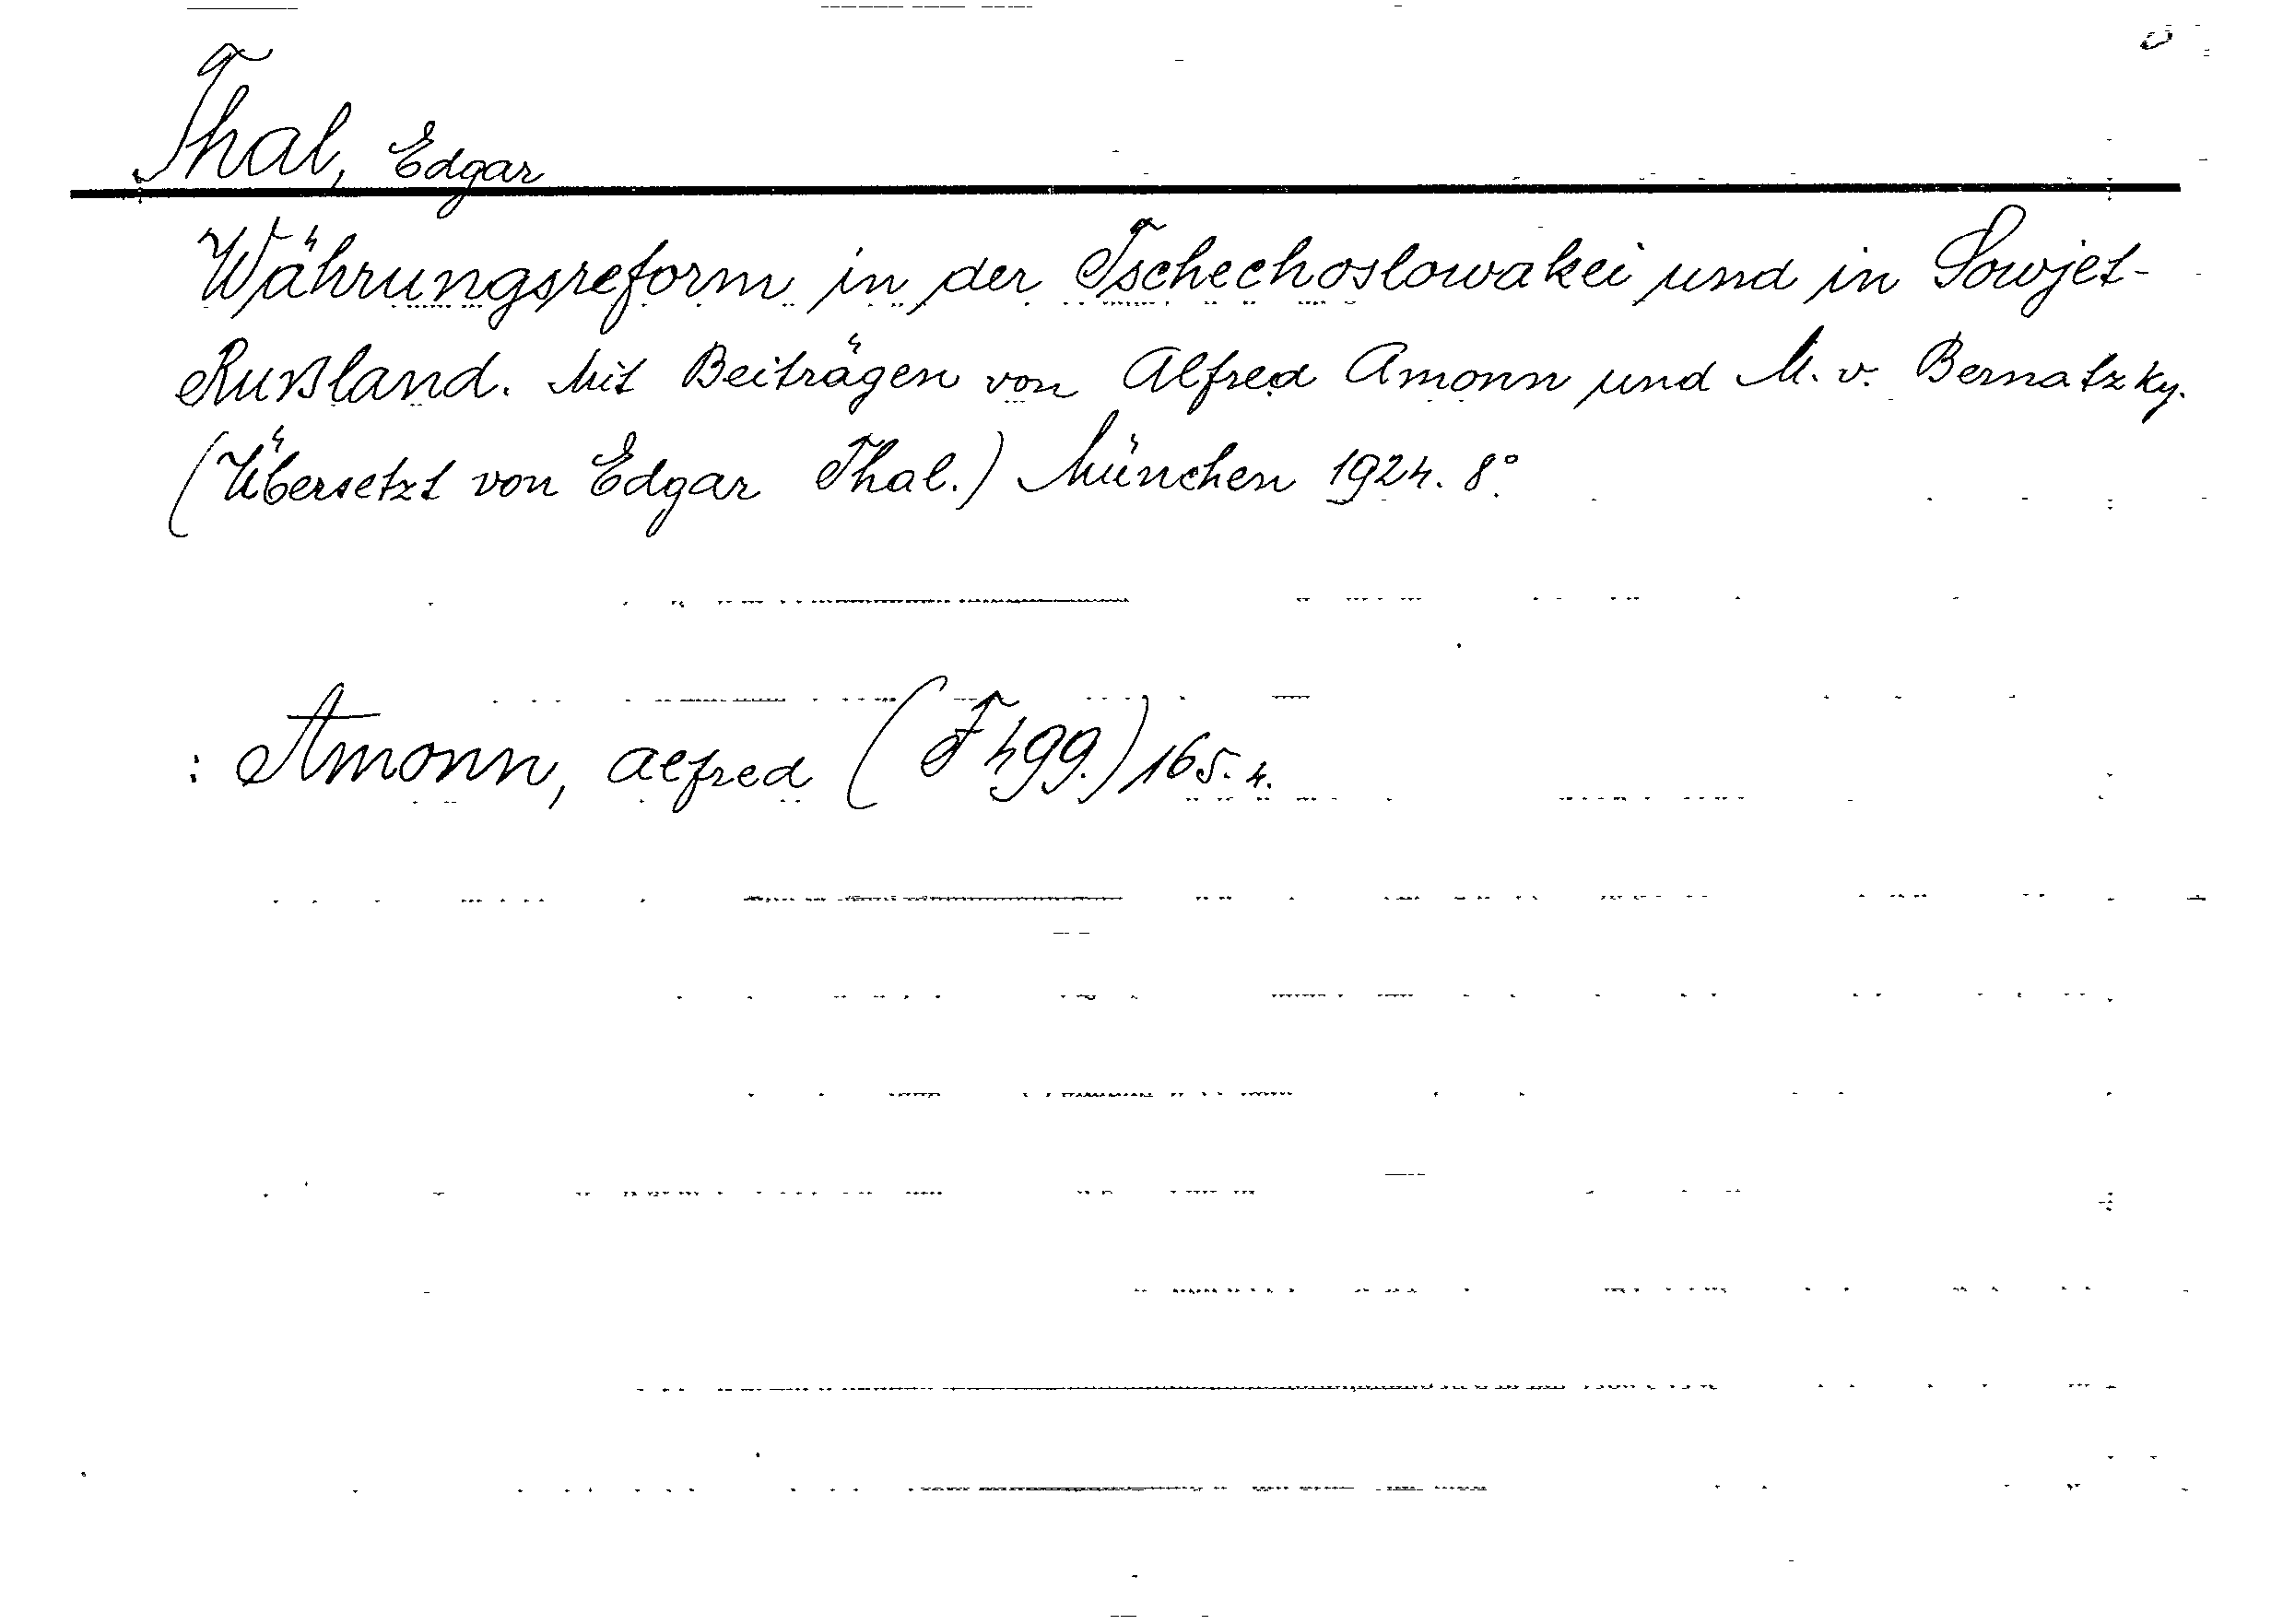 Thal, Edgar
Währungsreform in der Tschechoslowakei und in Sowjet-
Rußland. Mit Beiträgen von Alfred Amonn und M. v. Bernatzky.
(Übersetzt von Edgar Thal.) München 1924. 8°.
: Amonn, Alfred (F 499.) 165. 4.